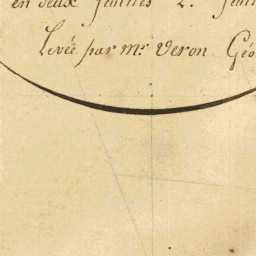 en deux feuilles 2.e feuil
Levée par mr. Veron Géo